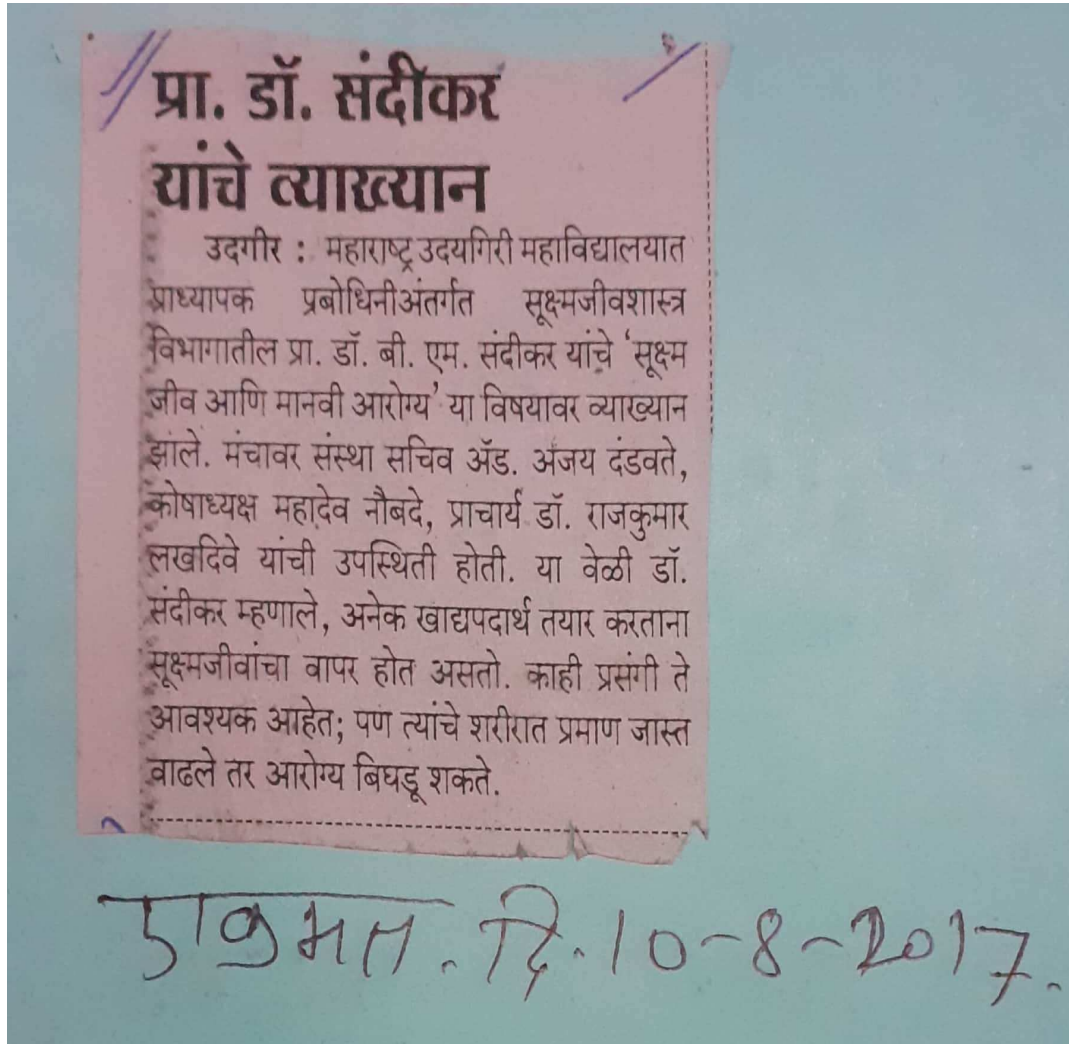 प्रा. डॉ. संदीकर
यांचे व्याख्यान
उदगीर : महाराष्ट्र उदयगिरी महाविद्यालयात
प्राध्यापक प्रबोधिनीअंतर्गत सूक्ष्मजीवशास्त्र
विभागातील प्रा. डॉ. बी. एम. संदीकर यांचे ‘सूक्ष्म
जीव आणि मानवी आरोग्य’ या विषयावर व्याख्यान
झाले. मंचावर संस्था सचिव अ‍ॅड. अजय दंडवते,
कोषाध्यक्ष महादेव नौबदे, प्राचार्य डॉ. राजकुमार
लखदिवे यांची उपस्थिती होती. या वेळी डॉ.
संदीकर म्हणाले, अनेक खाद्यपदार्थ तयार करताना
सूक्ष्मजीवांचा वापर होत असतो. काही प्रसंगी ते
आवश्यक आहेत; पण त्यांचे शरीरात प्रमाण जास्त
वाढले तर आरोग्य बिघडू शकते.
एकमत. दि. 10-8-2017.